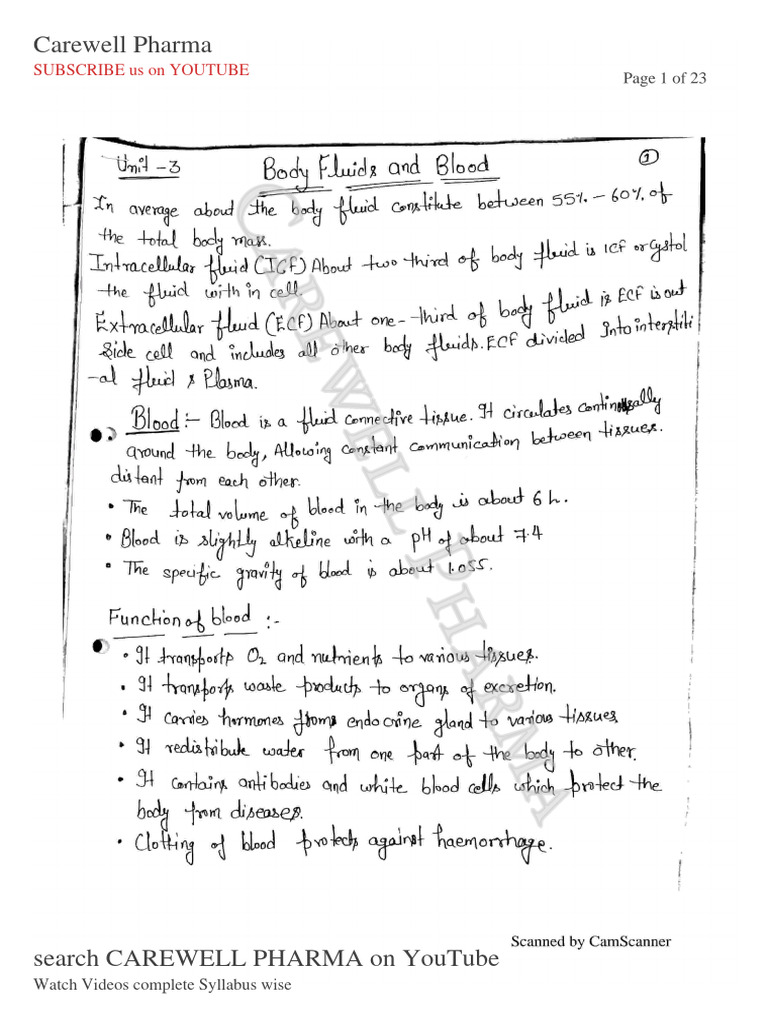 Carewell Pharma
SUBSCRIBE us on YOUTUBE
Page 1 of 23
Unit -3
Body Fluids and Blood
1
In average about the body fluid constitute between 55% - 60% of
the total body mass.
Intracellular fluid (ICF) About two third of body fluid is ICF or Cystol
the fluid with in cell.
Extracellular fluid (ECF) About one-third of body fluid is ECF is out
side cell and includes all other body fluids. ECF divided into interstiti
-al fluid & Plasma.
Blood:- Blood is a fluid connective tissue. It circulates continusally
around the body, Allowing constant communication between tissues.
distant from each other.
• The total volume of blood in the body is about 6 L.
• Blood is slightly alkeline with a pH of about 7.4
• The specific gravity of blood is about 1.055.
Function of blood :-
• It transports O2 and nutrients to various tissues.
• It transports waste products to organs of excretion.
• It carries hormones from endocrine gland to various tissues
• It redistribute water from one part of the body to other.
• It contains antibodies and white blood cells which protect the
body from diseases.
• Clotting of blood protects against haemorrhage.
CAREWELL PHARMA
Scanned by CamScanner
search CAREWELL PHARMA on YouTube
Watch Videos complete Syllabus wise